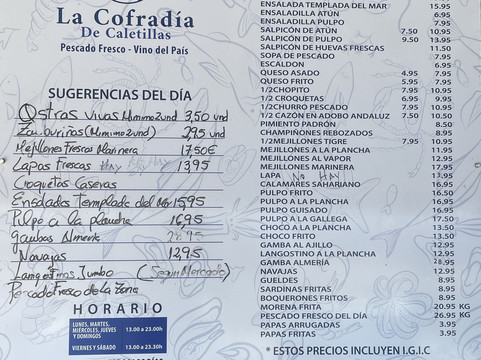 La Cofradía
De Caletillas
Pescado Fresco - Vino del País
SUGERENCIAS DEL DÍA
Ostras vivas Minimo 2und 3,50 und
Zamburiñas (Minimo 2und) 2,95 und
Mejillones Frescos Marinera 17,50€
Lapas Frescas Hay 13,95
Croquetas Caseras
Ensaladas Templada del Mar 15,95
Pulpo a la plancha 16,95
gambas Almeria 28.95
Navajas 12,95
Langostinos Jumbo (Según Mercado)
Pescado Fresco de la Zona
HORARIO
LUNES, MARTES,
MIERCOLES, JUEVES
Y DOMINGOS 13.00 a 23.00h
VIERNES Y SÁBADO 13.00 a 23.30h
ENSALADA TEMPLADA DEL MAR 15.95
ENSALADILLA ATÚN 6.95
ENSALADILLA PULPO 7.95
SALPICÓN DE ATÚN 7.50 10.95
SALPICÓN DE PULPO 9.50 13.50
SALPICÓN DE HUEVAS FRESCAS 11.50
SOPA DE PESCADO 7.95
ESCALDON 6.95
QUESO ASADO 4.95 7.95
QUESO FRITO 5.95 7.95
1/2CHOPITO 7.95 10.95
1/2 CROQUETAS 6.95 9.95
1/2CHURRO PESCADO 7.95 10.95
1/2 CAZÓN EN ADOBO ANDALUZ 7.50 10.50
PIMIENTO PADRÓN 8.50
CHAMPIÑONES REBOZADOS 8.95
1/2MEJILLONES TIGRE 7.95 10.95
MEJILLONES A LA PLANCHA 11.95
MEJILLONES AL VAPOR 12.95
MEJILLONES MARINERA 17.95
LAPA No HAY 13.95
CALAMARES SAHARIANO 16.95
PULPO FRITO 16.50
PULPO A LA PLANCHA 16.95
PULPO GUISADO 16.95
PULPO A LA GALLEGA 17.50
CHOCO A LA PLANCHA 13.50
CHOCO FRITO 13.50
GAMBA AL AJILLO 12.95
LANGOSTINO A LA PLANCHA 12.95
GAMBA ALMERÍA 28.95
NAVAJAS 12.95
GUELDES 8.95
SARDINAS FRITAS 8.95
BOQUERONES FRITOS 8.95
MORENA FRITA 20.95 KG
PESCADO FRESCO DEL DÍA 26.95 KG
PAPAS ARRUGADAS 3.95
PAPAS FRITAS 3.95
* ESTOS PRECIOS INCLUYEN I.G.I.C